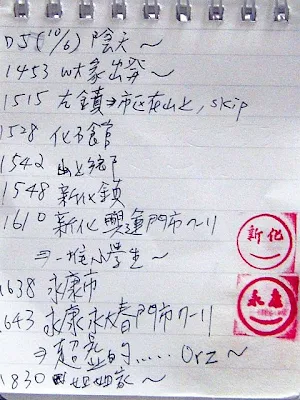 D5 (10/6) 陰天～
1453 出發～
1515 左鎮⇒市區在山上, skip
1528 化石館
1542 山上鄉
1548 新化鎮
1610 新化興運門市 7-11
⇒一堆小學生～
1638 永康市
1643 永康永大春門市 7-11
⇒超虛的…… Orz～
1830 家～
新化
永康